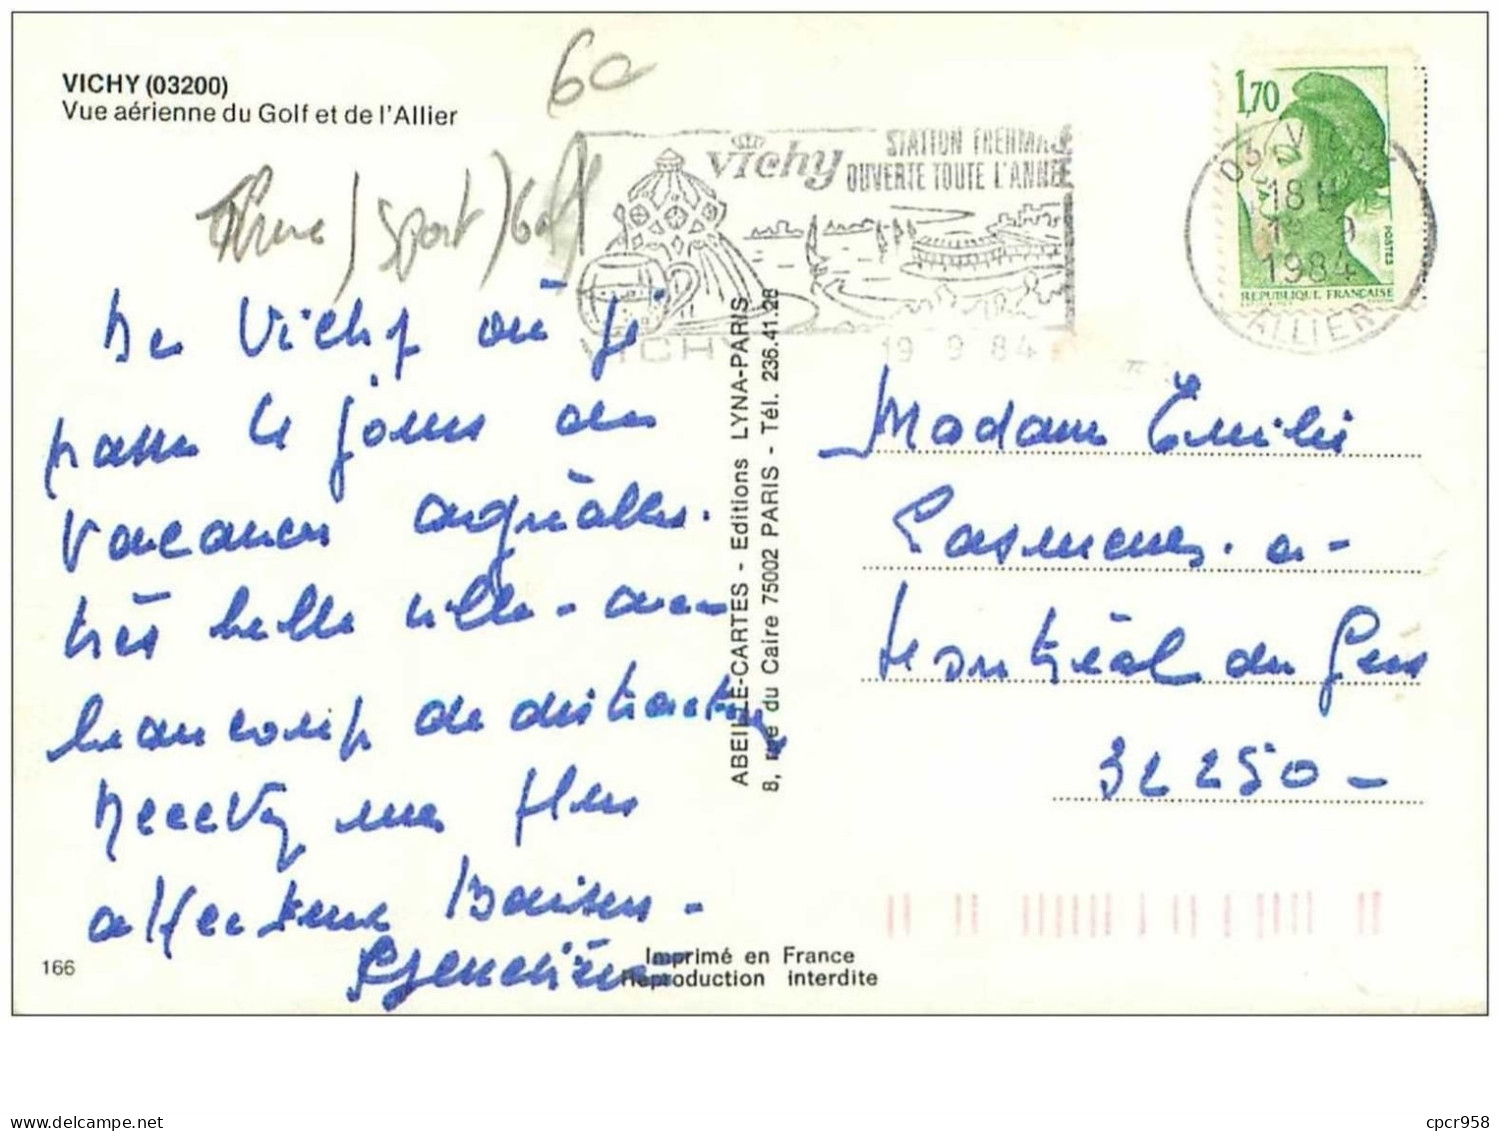 VICHY (03200)
Vue aérienne du Golf et de l'Allier
60
Thème / Sport / Golf
vichy
STATION THERMALE
OUVERTE TOUTE L'ANNÉE
VICHY
19 9 84
1,70
POSTES
REPUBLIQUE FRANÇAISE
03 VICHY
18 H
19 9
1984
ALLIER
De Vichy où je
passe le jours de
vacances
très belle ville - avec
beaucoup de distractions
Recevez mes plus
affectueux Baisers -
Geneviève
ABEILLE-CARTES - Editions LYNA-PARIS
8, rue du Caire 75002 PARIS - Tél. 236.41.28
Madame Emilie
à -
Montréal du Gers
32250 -
166
Imprimé en France
Reproduction interdite
cpcr958
delcampe.net